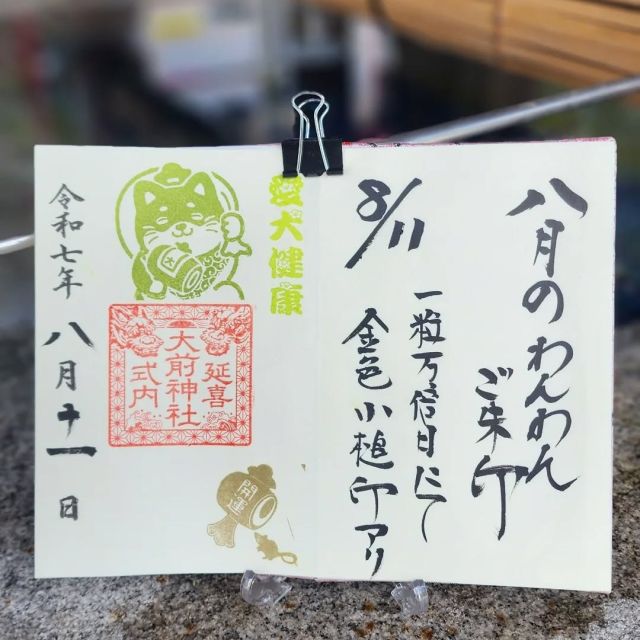 八月のわんわん
ご朱印
8/11
一粒万倍日にて
金色小槌印アリ
愛犬健康
延喜
大前神社
式内
開運
令和七年
八月十一日